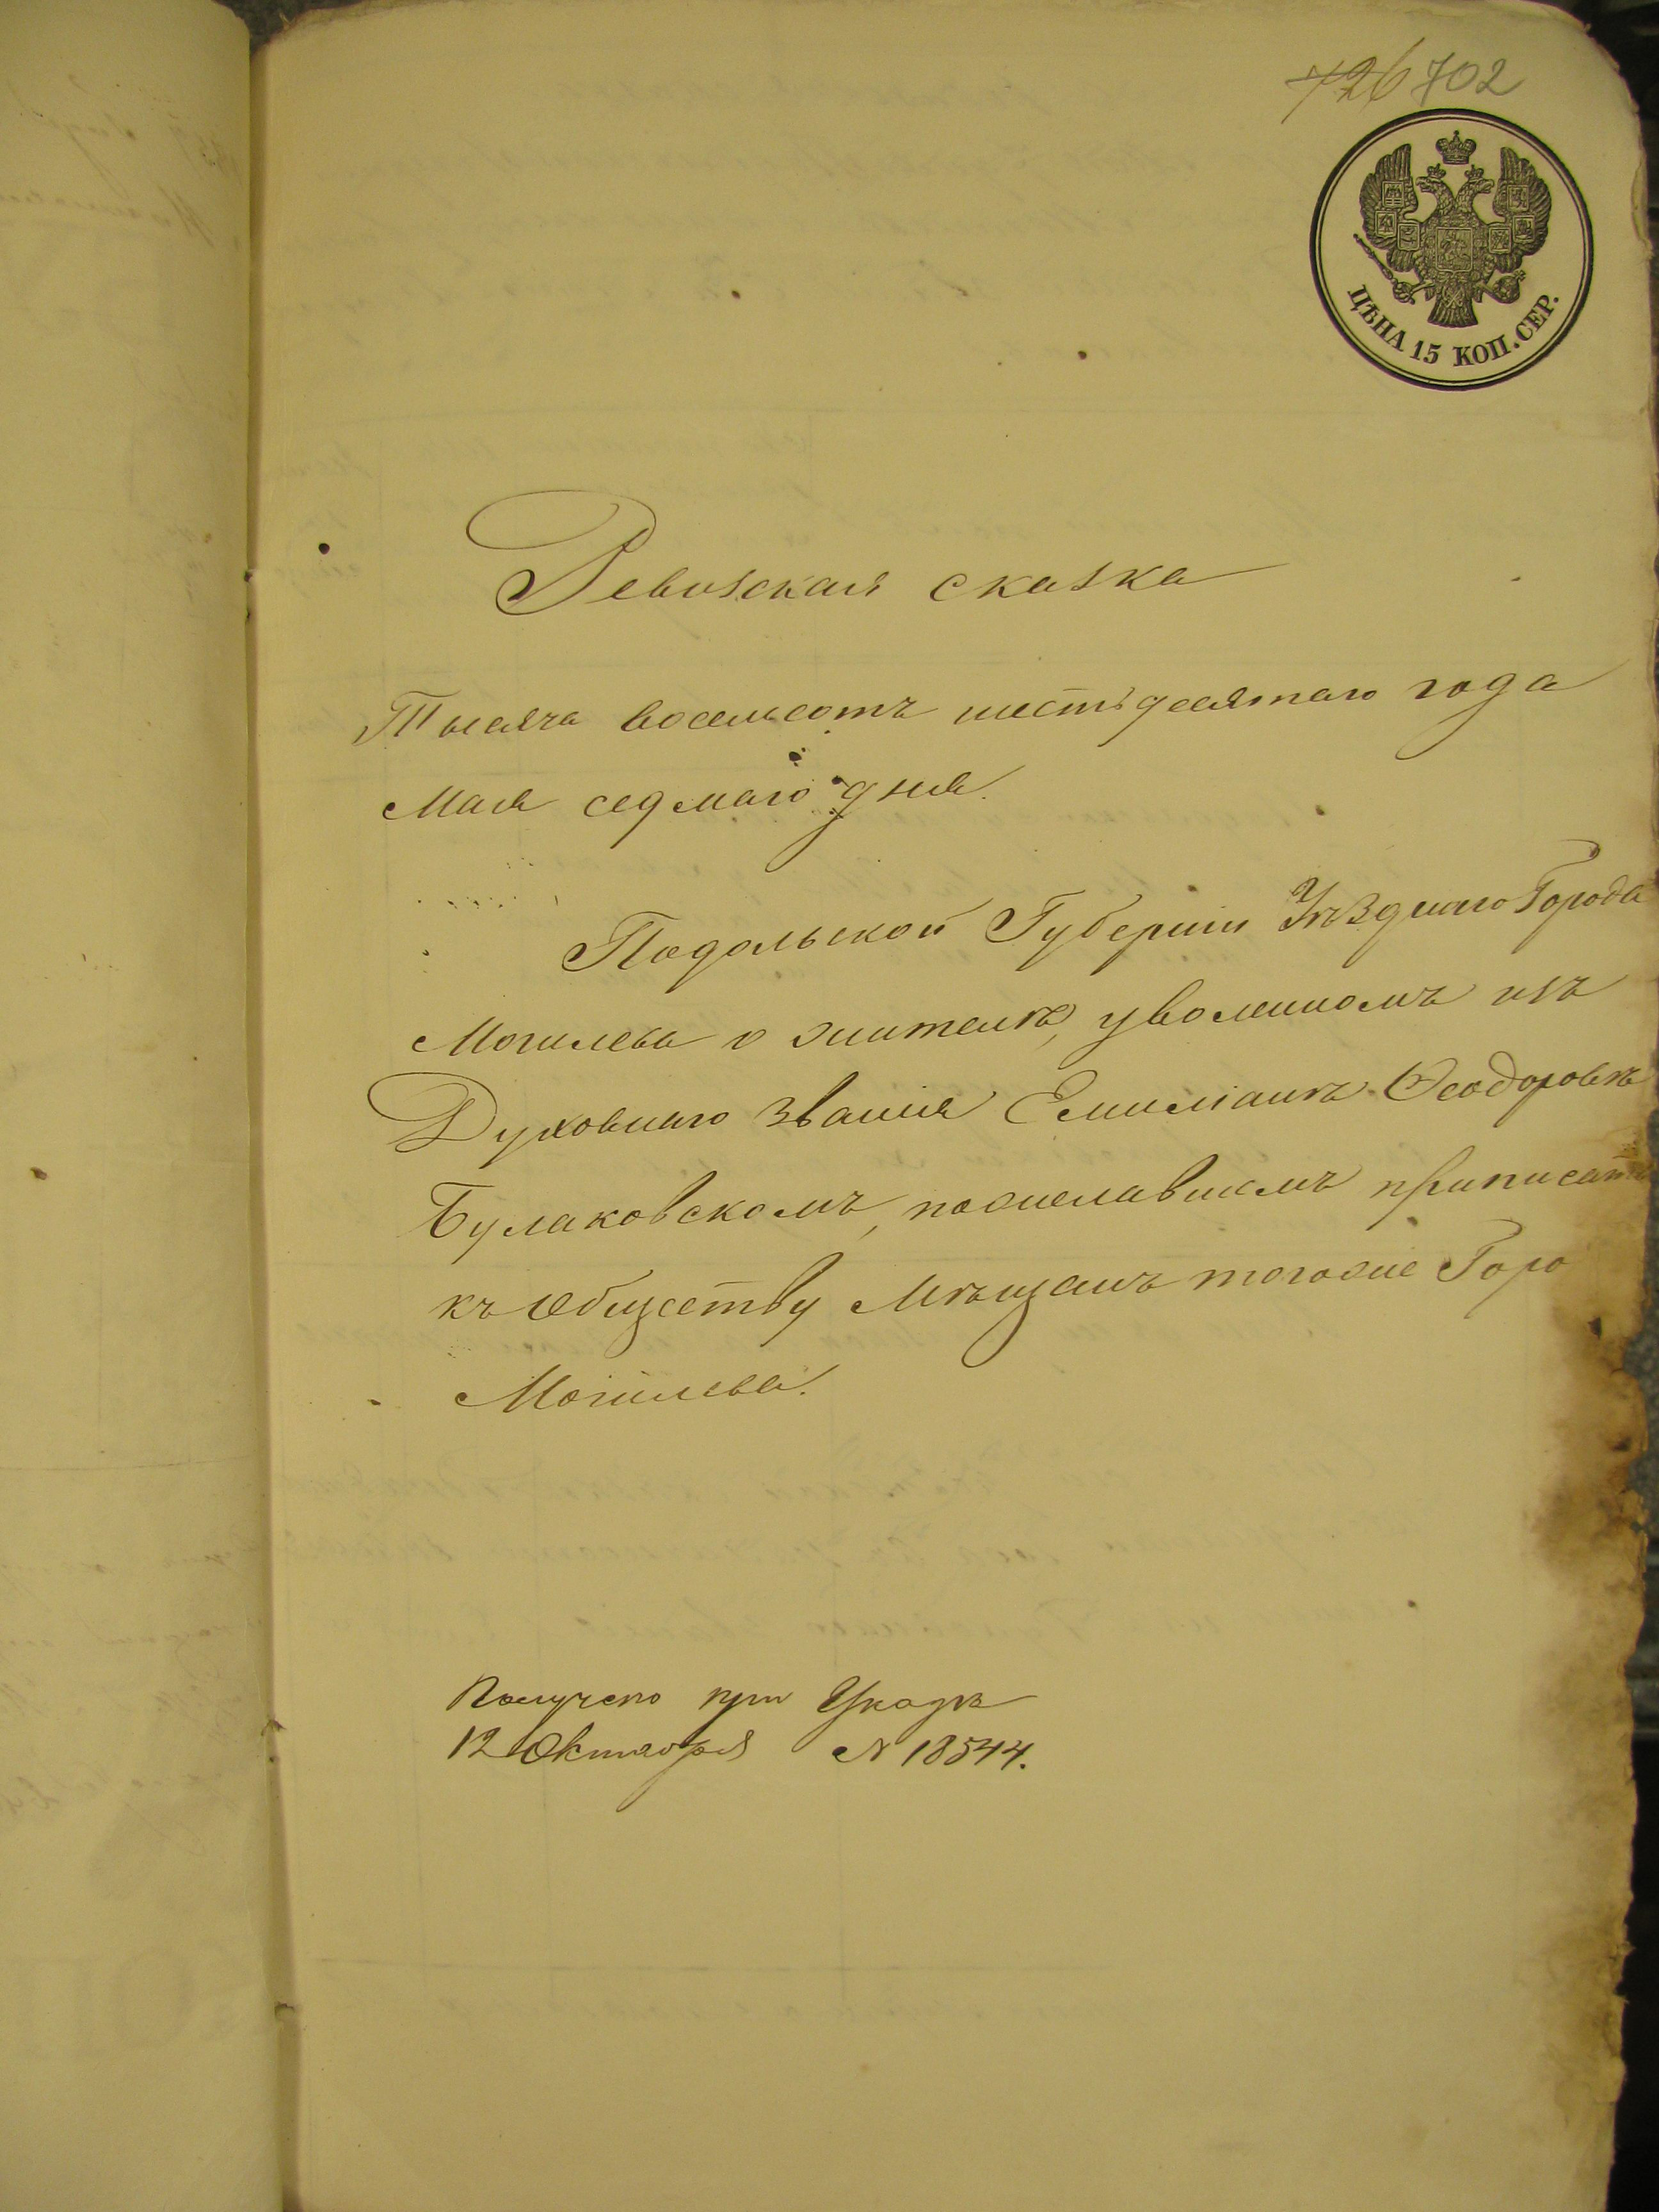 726 702
ЦѢНА 15 КОП. СЕР.
Ревизская сказка
Тысяча восемьсотъ шестьдесятаго года
Мая седмаго дня.
Подольской Губерніи Уѣзднаго Города
Могилева о жителѣ, уволенномъ изъ
Духовнаго званія Емиліанѣ Ѳеодоровѣ
Булаковскомъ, пожелавшемъ приписать
къ обществу Мѣщанъ тогоже Горо
Могилева.
Получено при Указѣ
12 Октября № 18544.